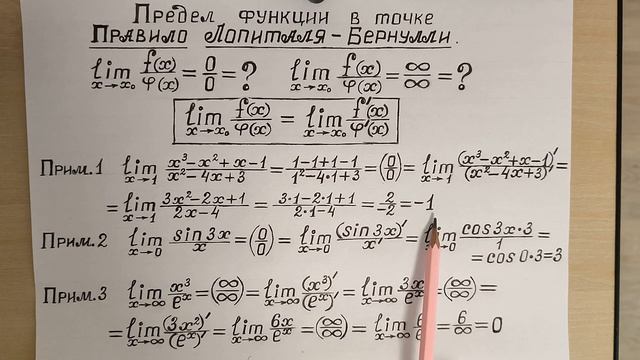 Предел функции в точке
Правило Лопиталя-Бернулли.
lim x→x₀ f(x)/φ(x) = 0/0 = ? lim x→x₀ f(x)/φ(x) = ∞/∞ = ?
lim x→x₀ f(x)/φ(x) = lim x→x₀ f'(x)/φ'(x)
Прим.1 lim x→1 (x³-x²+x-1)/(x²-4x+3) = (1-1+1-1)/(1²-4·1+3) = (0/0) = lim x→1 (x³-x²+x-1)'/(x²-4x+3)' =
= lim x→1 (3x²-2x+1)/(2x-4) = (3·1-2·1+1)/(2·1-4) = 2/-2 = -1
Прим.2 lim x→0 sin3x/x = (0/0) = lim x→0 (sin3x)'/x' = lim x→0 cos3x·3/1 =
= cos0·3=3
Прим.3 lim x→∞ x³/eˣ = (∞/∞) = lim x→∞ (x³)'/(eˣ)' = lim x→∞ 3x/eˣ = (∞/∞) =
= lim x→∞ (3x²)'/(eˣ)' = lim x→∞ 6x/eˣ = (∞/∞) = lim x→∞ 6 = 6/∞ = 0